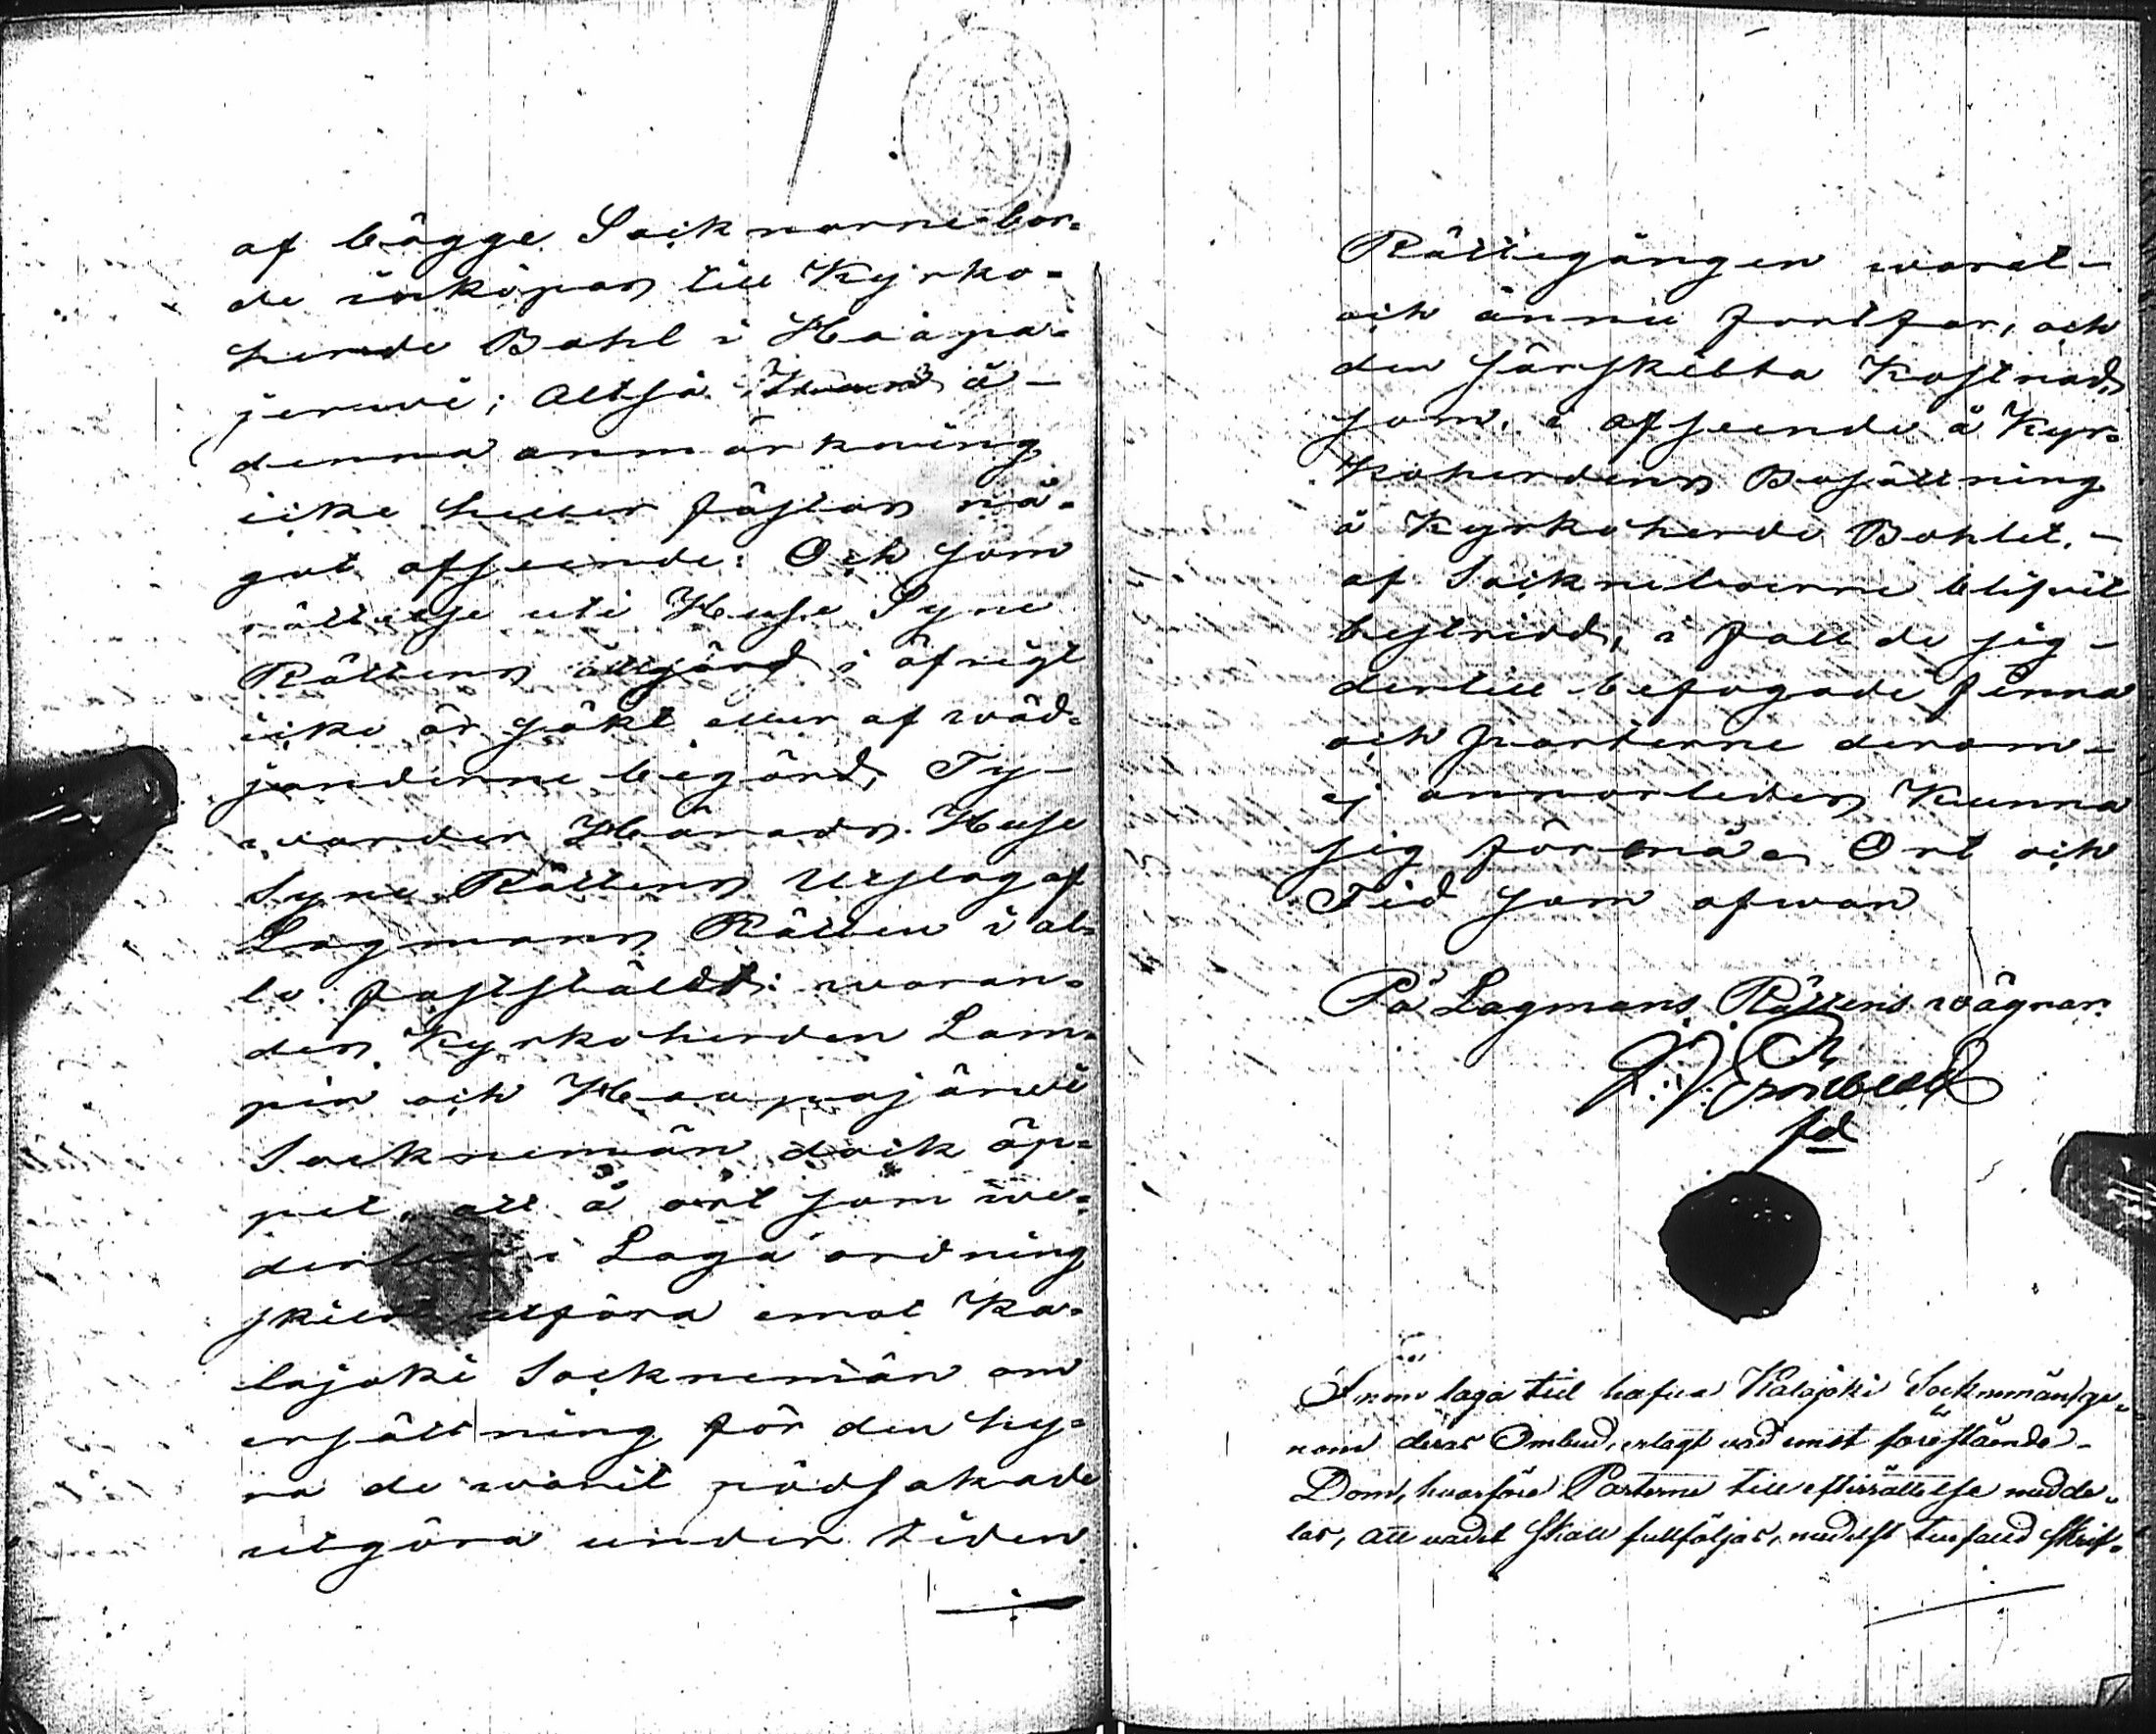 af bägge Socknarne bor-
de inköpas till Kyrko-
herde Bohl i Haapa-
jerwi; Altså kunde å
denna anmärkning
icke heller fästas nå-
got afseende: Och som
rättelse uti Huse Syne
Rättens åtgärd i öfrigt
icke är sökt eller af wäd-
janderne begärd, Ty
warder Härads Huse
Syne Rättens Utslag af
Lagmans Rätten i al-
lo fastställdt: waran-
des Kyrkoherden Lam-
pin och Haapajärwi
Socknemän dock öp-
pet, att å ort som we-
derbör i Laga ordning
skildt utföra emot Ka-
lajoki Socknemän om
ersättning för den hy-
ra de warit nödsakade
utgöra under tiden
Rättegången warat
och ännu fortfar, och
den särskilta Kostnad,
som i afseende å Kyr-
koherdens Bosättning
å Kyrkoherde Bohlet,
af Socknеboerne blifvit
bestridd, i fall de sig
dertill befogade finna
och parterne derom
ej annorledes Kunna
sig förenа. Ort och
Tid som ofwan
På Lagmans Rättens wägnar.
Inom laga tid hafva Kalajoki Sockenmän ge-
nom deras Ombud, erlagt vad emot förestående
Dom, hvarföre Parterne till efterrättelse medde-
las, att vadet skall fullföljas, medelst skrif-